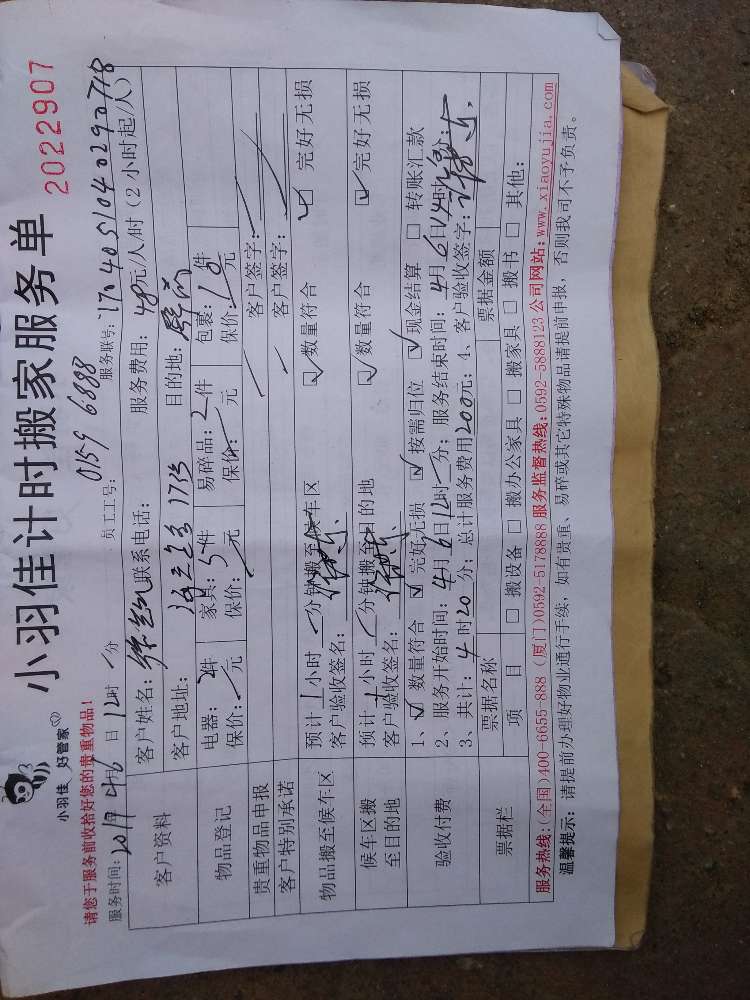 小羽佳 好管家
小羽佳计时搬家服务单
2022907
请您于服务前收拾好您的贵重物品!
0159 6888
服务时间: 2019 年 4 月 6 日 12 时 / 分 员工工号: 服务联号: 170405104029078
客户资料 客户姓名: 联系电话: 服务费用: 48元/人/时 (2小时起/人)
客户地址: 1715 目的地:
物品登记 电器: 2件 家具: 5件 易碎品: 2件 包裹: 10件
保价: / 元 保价: / 元 保价: / 元 保价: / 元
贵重物品申报 客户签字:
客户特别承诺 客户签字:
物品搬至候车区 预计 1 小时 / 分钟搬至候车区 ☑数量符合 ☑完好无损
客户验收签名:
候车区搬至目的地 预计 1 小时 / 分钟搬至目的地 ☑数量符合 ☑完好无损
客户验收签名:
验收付费 1、☑数量符合 ☑完好无损 ☑按需归位 ☑现金结算 □转账汇款
2、服务开始时间: 4月6日12时 / 分; 服务结束时间: 4月6日14时 分;
3、共计: 4时20分; 总计服务费用200元; 4、客户验收签字:
票据栏 票据名称 票据金额
项 目 □搬设备 □搬办公家具 □搬家具 □搬书 □其他:
服务热线:(全国)400-6655-888 (厦门)0592-5178888 服务监督热线:0592-5888123 公司网站:www.xiaoyujia.com
温馨提示: 请提前办理好物业通行手续, 如有贵重、易碎或其它特殊物品请提前申报, 否则我司不予负责。